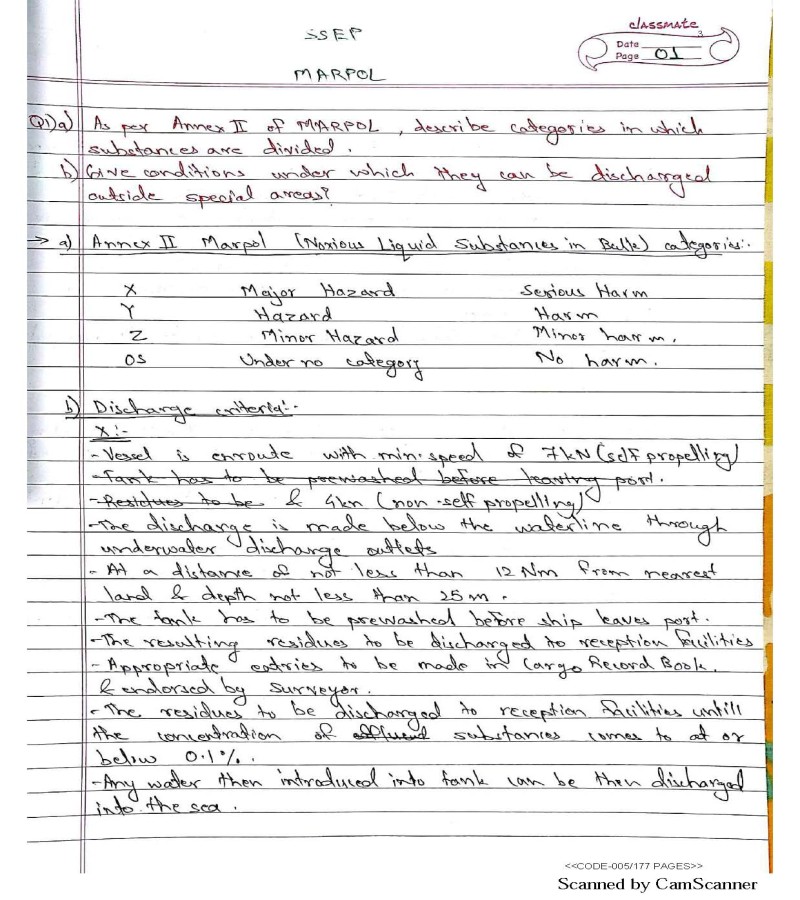 SSEP
classmate
Date
Page 01
MARPOL
Q1)a) As per Annex II of MARPOL, describe categories in which
substances are divided.
b) Give conditions under which they can be discharged
outside special areas?
→ a) Annex II Marpol (Noxious Liquid Substances in Bulk) categories:-
X Major Hazard Serious Harm
Y Hazard Harm
Z Minor Hazard Minor harm.
OS Under no category No harm.
b) Discharge criteria:-
X:-
- Vessel is enroute with min. speed of 7kN (self propelling)
- Tank has to be prewashed before leaving port.
- Residues to be & 4kn (non-self propelling)
- The discharge is made below the waterline through
underwater discharge outlets
- At a distance of not less than 12 Nm from nearest
land & depth not less than 25 m.
- The tank has to be prewashed before ship leaves port.
- The resulting residues to be discharged to reception facilities
- Appropriate entries to be made in Cargo Record Book.
& endorsed by surveyor.
- The residues to be discharged to reception facilities untill
the concentration of effluent substances comes to at or
below 0.1%.
- Any water then introduced into tank can be then discharged
into the sea.
<<CODE-005/177 PAGES>>
Scanned by CamScanner